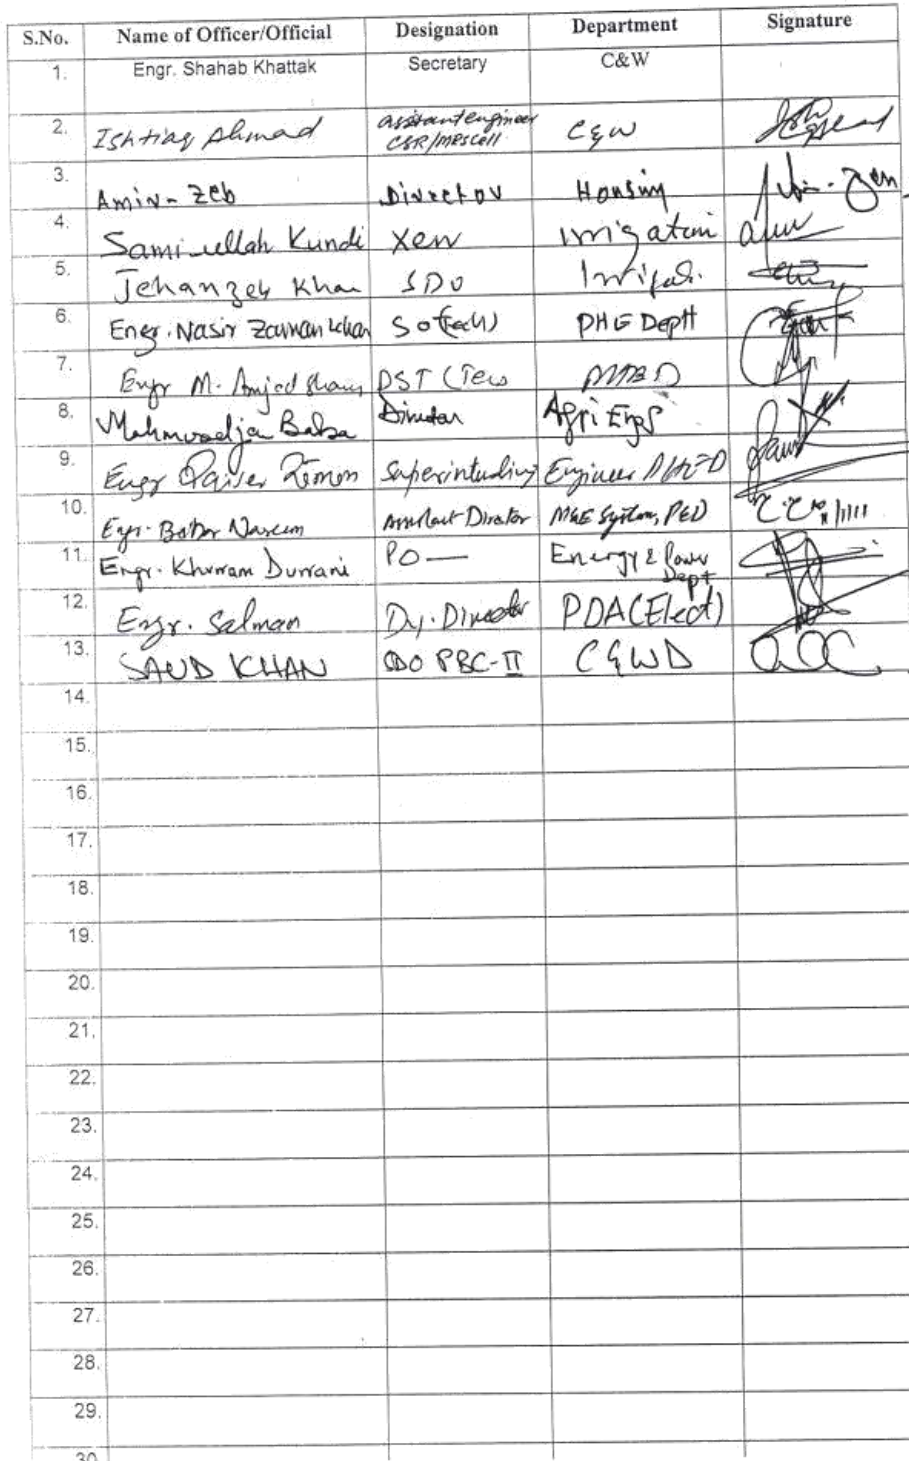 S.No. Name of Officer/Official Designation Department Signature
1. Engr. Shahab Khattak Secretary C&W
2. Ishtiaq Ahmad assistant engineer C&W
CSR/MRS cell
3. Amir-Zeb Director Housing
4. Sami-ullah Kundi Xen Irrigation
5. Jehanzeb Khan SDO
6. Engr. Nasir Zaman khan SO(Tech) PHE Deptt
7. Engr M. Amjad
8. Director Agri Engg
9. Engr Qaiser Zaman Superintending Engineer
10. Engr. Babar Naseem Assistant Director M&E System, PED
11. Engr. Khurram Durrani PO — Energy & Power
Dept
12. Engr. Salman Dy. Director PDA(Elect)
13. SAUD KHAN PBC-II C&WD
14.
15.
16.
17.
18.
19.
20.
21.
22.
23.
24.
25.
26.
27.
28.
29.
30